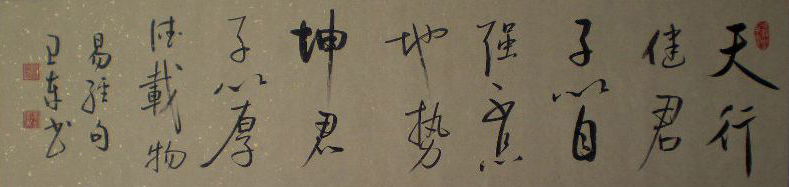 天行
健君
子以自
强不息
地势
坤君
子以厚
德載物
易经句
书